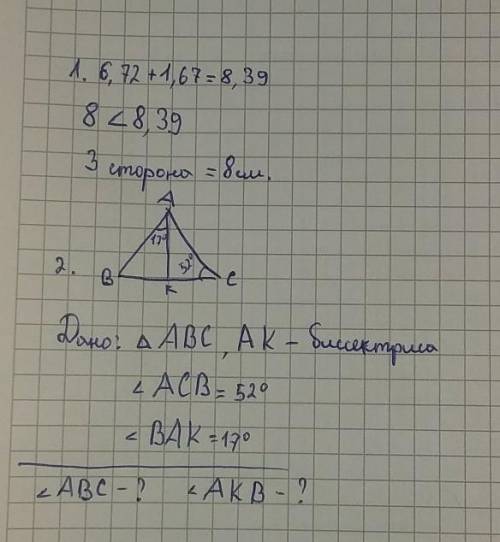 1. 6,72 + 1,67 = 8,39
8 < 8,39
3 сторона = 8 см.
A
17°
2. B 52° C
K
Дано: △ ABC, AK – биссектриса
∠ ACB = 52°
∠ BAK = 17°
∠ ABC – ? ∠ AKB – ?